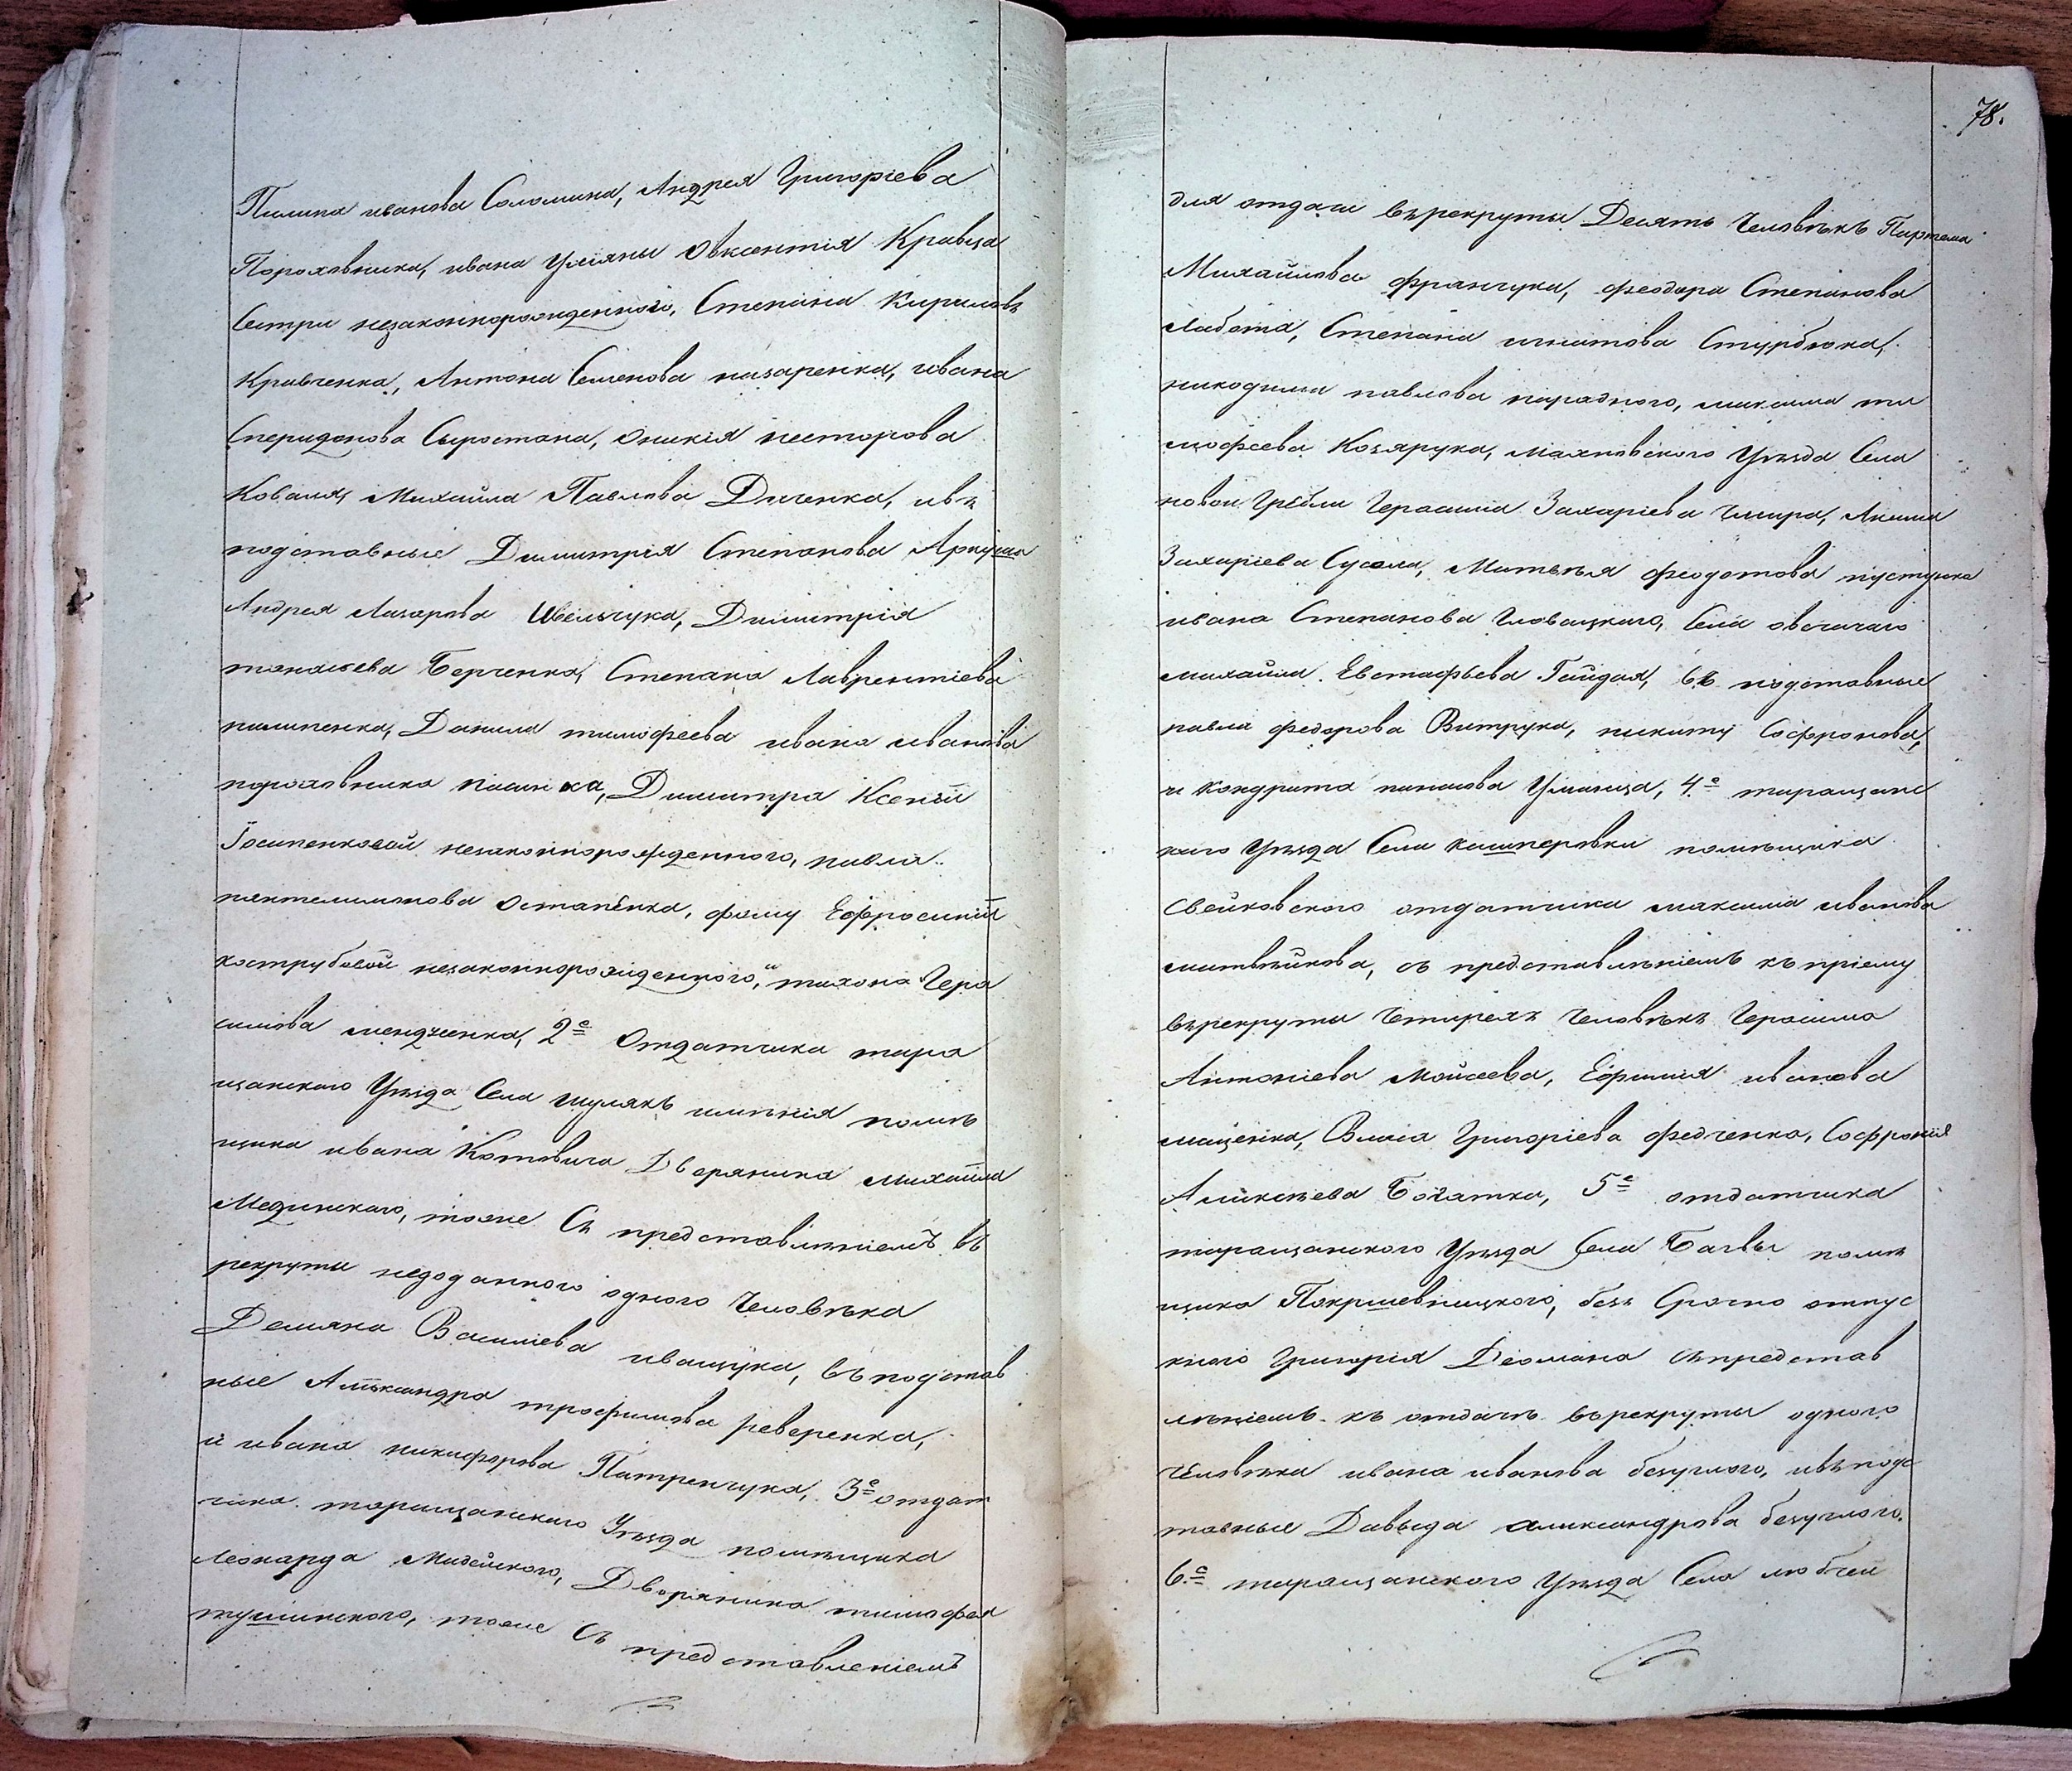 Пилипа иванова Соломина, Андрея Григоріева
Пороховника, ивана Уліяны Овксентія Кравца
Сестри незаконнорожденного, Степана Кирилова
Кравченка, Антона Семенова назаренка, ивана
Сперидонова Сыростана, Оникія несторова
Коваля, Михайла Павлова Дяченка, ивъ
подставные Димитрія Степанова Аркуша
Андрея Лазарова Швельчука, Димитрія
танасьева Берченка, Степана Лаврентіева
пилипенка, Данила тимофеева ивана иванова
пороховника Димитра Ксеніи
Іосипенковой незаконнорожденного, павла
пантелимонова Остапенка, фому Ефросиніи
кострубовой незаконнорожденного, и тихона Гера
симова 2е Отдатчика тара
щанского Уѣзда Села шулякъ имѣнія помѣ
щика ивана Котовича Дворянина Михайла
Мединского, тоже Съ представлѣніемъ въ
рекруты недоданного одного Человѣка
Демяна Василіева иващука, въ подстав
ные Алѣксандра трофимова реверенка,
и ивана никифорова Питренчука, 3е отдат
чика таращанского Уѣзда помѣщика
Леонарда Мадейского, Дворянина тимофея
тушинского, тоже Съ представленіемъ
78.
для отдачи върекруты Десять Человѣкъ Партема
Михайлова франчука, феодора Степанова
Лабота, Степана игнатова Стурбюка,
никодима павлова парадного, максима ти
мофеева Козярука, Махновского Уѣзда Села
новой Гребли Герасима Захаріева Чмира, Акима
Захаріева Сусола, Матвѣя феодотова пустушка
ивана Степанова Гловацкого, Села овечачаго
михайла Евстафьева Гайдая, въ подставные
павла федорова Витрука, никиту Софронова,
и Кондрата Уманца, 4е таращанс
кого Уѣзда Села кашперовки помѣщика
Свейковского отдатчика максима иванова
матвѣйкова, съ представлѣніемъ къ пріему
върекруты Четирехъ Человѣкъ Герасима
Антоніева Мойсеева, Ефимія иванова
мащенка, Власа Григоріева федченка, Софронія
Алѣксѣева Богатка, 5е отдатчика
таращанского Уѣзда Села Багвы помѣ
щика Покршевницкого, безъ Срочно отпус
кного Григорія Деомана Съпредстав
лѣніемъ къ отдачѣ върекруты одного
Человѣка ивана иванова безуглого, ивъподс
тавные Давыда александрова безуглого.
6.е таращанского Уѣзда Села любчи